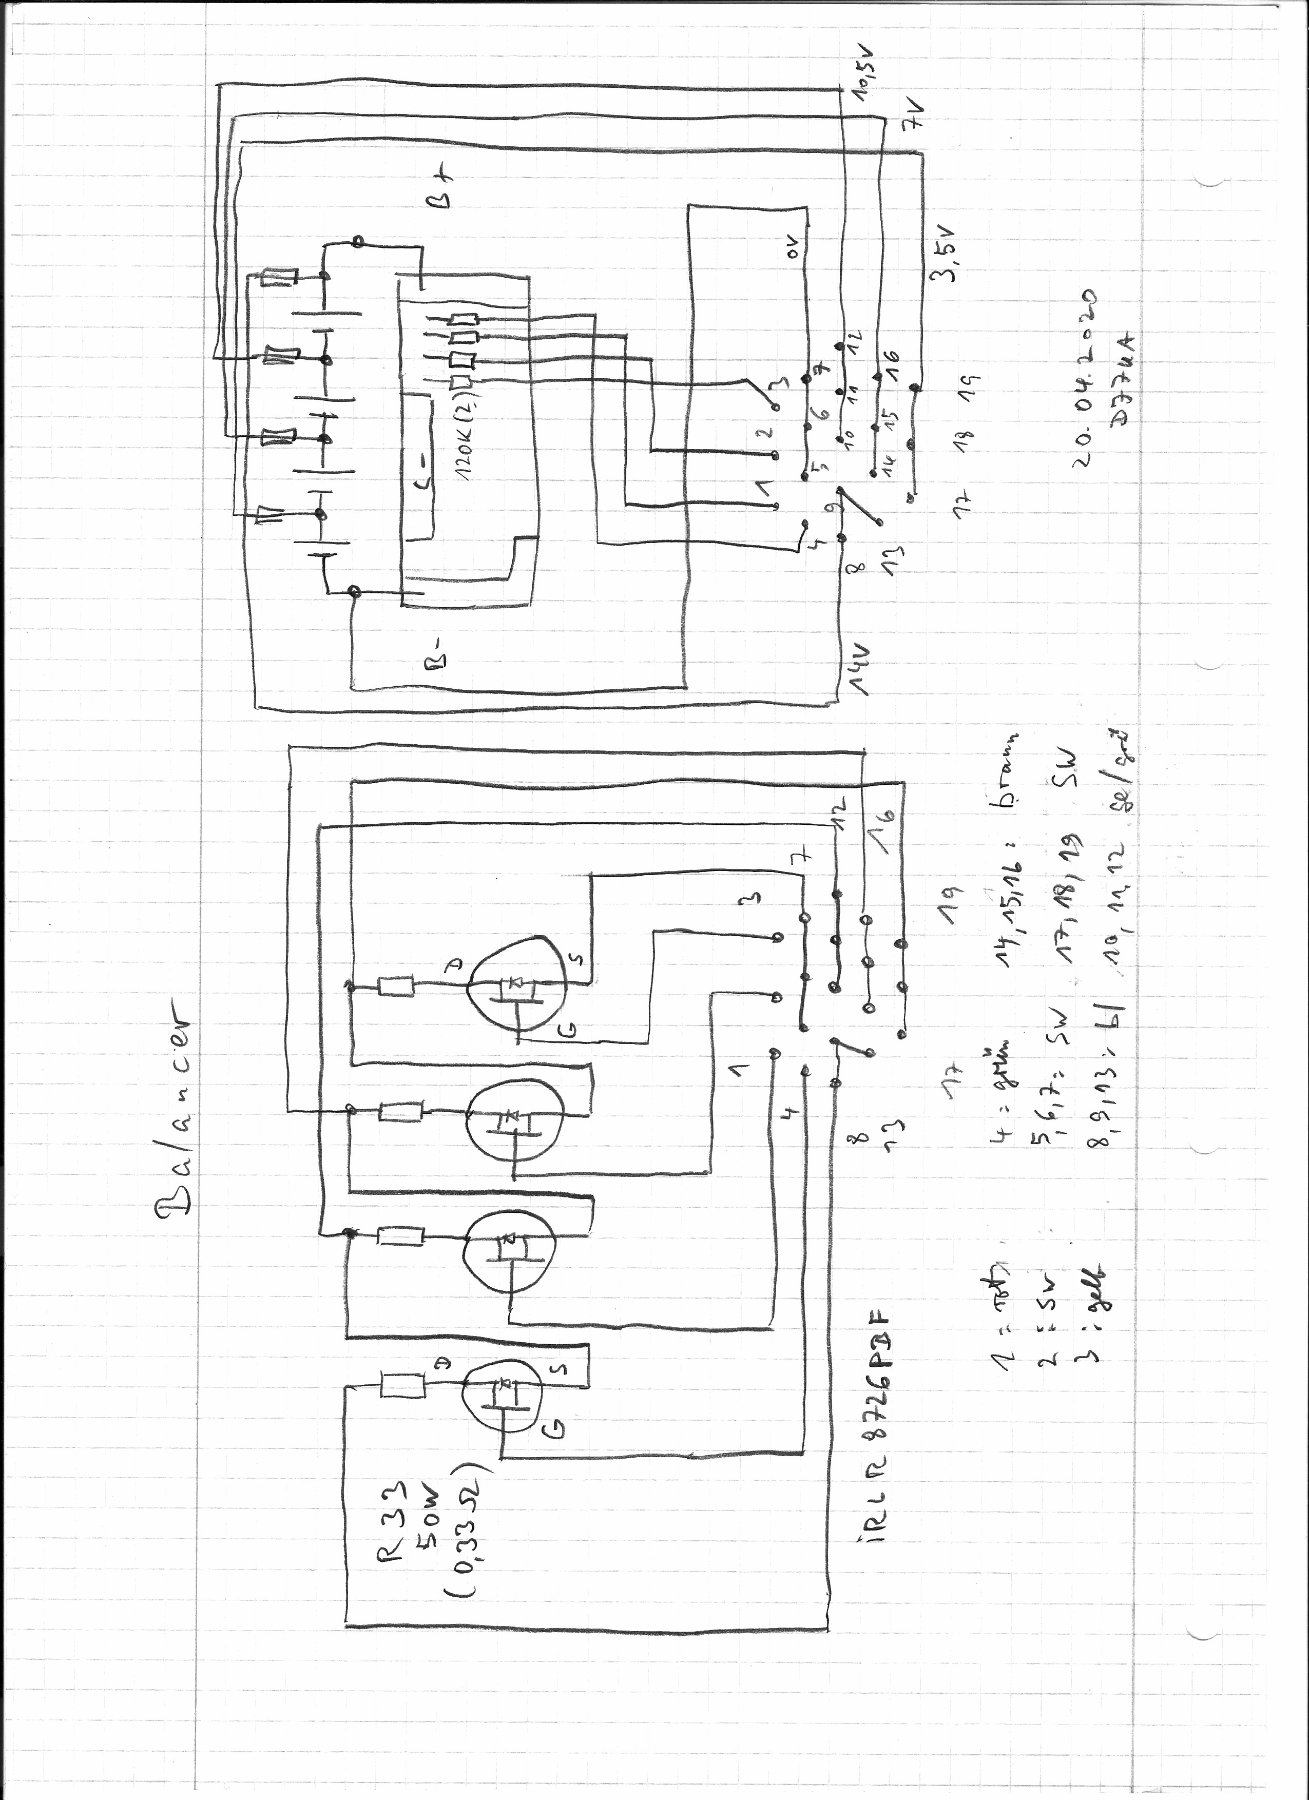 Balancer
R33
50W
(0,33Ω)
D
G
S
D
G
S
iRLR 8726PBF
1
3
4
7
8
12
13
16
17
19
1 = rot
2 = SW
3 : gelb
4 = grün
5,6,7 = SW
8,9,13 = bl
14,15,16 = braun
17,18,19 SW
10,11,12 ge/grü
B-
B+
C-
120K(2)
0V
14V
10,5V
7V
3,5V
1
2
3
4
5
6
7
8
9
10
11
12
13
14
15
16
17
18
19
20.04.2020